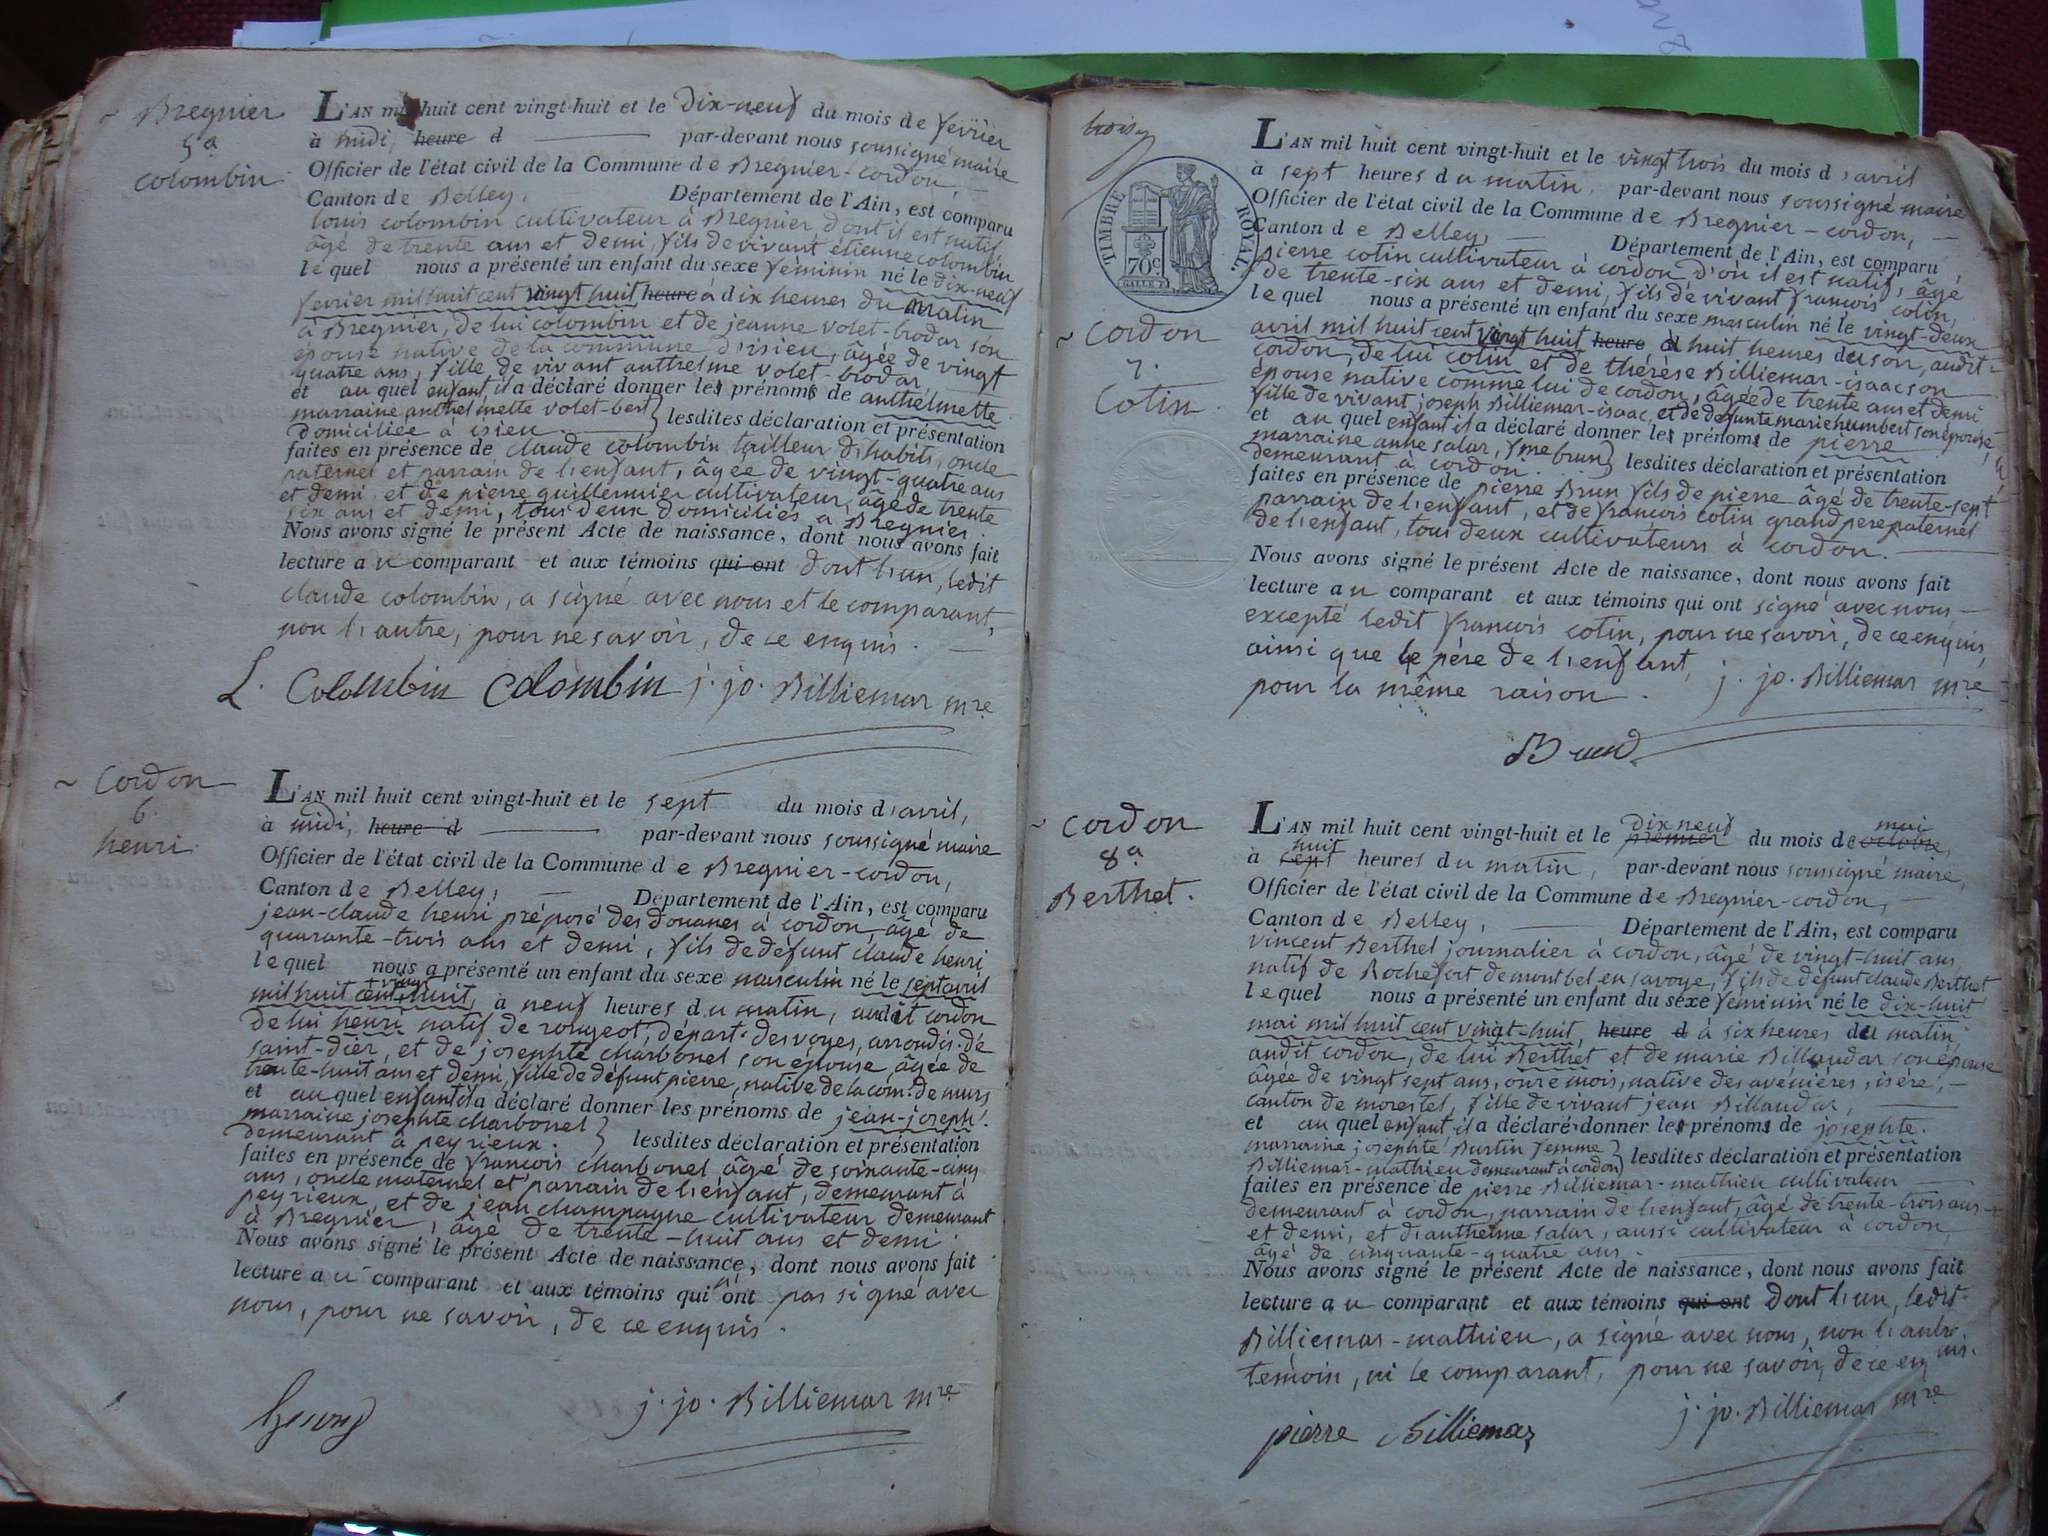 Bregnier
5a
colombin
L'AN mil huit cent vingt-huit et le dix-neuf du mois de fevrier
à midi, heure d par-devant nous soussigné maire
Officier de l'état civil de la Commune de Bregnier-cordon,
Canton de Belley, Département de l'Ain, est comparu
louis colombin cultivateur à Bregnier, dont il est natif
âgé de trente ans et demi, fils de vivant étienne colombin
lequel nous a présenté un enfant du sexe féminin né le dix-neuf
fevrier mil huit cent vingt huit heure à dix heures du matin
à Bregnier, de lui colombin et de jeanne volet-brodar son
épouse native de la commune d'isieu, âgée de vingt
quatre ans, fille de vivant anthelme volet-brodar,
et au quel enfant, il a déclaré donner les prénoms de anthelmette
marraine anthelmette volet-bert
domiciliée à isieu. } lesdites déclaration et présentation
faites en présence de claude colombin tailleur d'habits, oncle
paternel et parrain de l'enfant, âgée de vingt-quatre ans
et demi et de pierre guillermier cultivateur, âgé de trente
six ans et demi, tous deux domiciliés a Bregnier.
Nous avons signé le présent Acte de naissance, dont nous avons fait
lecture au comparant et aux témoins qui ont dont l'un, ledit
claude colombin, a signé avec nous et le comparant,
non l'autre, pour ne savoir, de ce enquis.
L. Colombin Colombin j. jo. Billiemar mre
Cordon
6.
henri
L'AN mil huit cent vingt-huit et le sept du mois d'avril,
à midi, heure d par-devant nous soussigné maire
Officier de l'état civil de la Commune de Bregnier-cordon,
Canton de Belley, Département de l'Ain, est comparu
jean-claude henri préposé des douanes à cordon, âgé de
quarante-trois ans et demi, fils de défunt claude henri
lequel nous a présenté un enfant du sexe masculin né le sept avril
mil huit cent vingt huit, à neuf heures du matin, audit cordon
de lui henri natif de rougeot, départ. des voges, arrondis. de
saint-dier, et de josephte charbonel son épouse âgée de
trente-huit ans et demi, fille de défunt pierre, native de la com. de murs
et au quel enfant il a déclaré donner les prénoms de jean-joseph.
marraine josephte charbonel
demeurant à peyrieux. } lesdites déclaration et présentation
faites en présence de françois charbonel âgé de soixante-cinq
ans, oncle maternel et parrain de l'enfant, demeurant à
peyrieux, et de jean champagne cultivateur demeurant
à Bregnier, âgé de trente-huit ans et demi.
Nous avons signé le présent Acte de naissance, dont nous avons fait
lecture au comparant et aux témoins qui n'ont pas signé avec
nous, pour ne savoir, de ce enquis.
j. jo. Billiemar mre
TIMBRE ROYAL.
70c
Cordon
7.
Cotin
L'AN mil huit cent vingt-huit et le vingt trois du mois d'avril
à sept heures du matin, par-devant nous soussigné maire
Officier de l'état civil de la Commune de Bregnier-cordon,
Canton de Belley, Département de l'Ain, est comparu
pierre cotin cultivateur à cordon d'ou il est natif, âgé
de trente-six ans et demi, fils de vivant françois cotin,
lequel nous a présenté un enfant du sexe masculin né le vingt-deux
avril mil huit cent vingt huit heure à huit heures du soir, audit-
cordon, de lui cotin et de thérèse Billiemar-isaac son
épouse native comme lui de cordon, âgée de trente ans et demi
fille de vivant joseph Billiemar-isaac, et de defunte marie humbert son épouse,
et au quel enfant il a déclaré donner les prénoms de pierre
marraine anne salar, fme brun
demeurant à cordon. } lesdites déclaration et présentation
faites en présence de pierre Brun fils de pierre âgé de trente-sept
parrain de l'enfant, et de françois cotin grand pere paternel
de l'enfant, tous deux cultivateurs à cordon.
Nous avons signé le présent Acte de naissance, dont nous avons fait
lecture au comparant et aux témoins qui ont signé avec nous,
excepté ledit françois cotin, pour ne savoir, de ce enquis,
ainsi que le père de l'enfant,
pour la même raison. j. jo. Billiemar mre
Cordon
8a
Berthet.
L'AN mil huit cent vingt-huit et le premier dix neuf du mois de octobre mai
à sept huit heures du matin, par-devant nous soussigné maire,
Officier de l'état civil de la Commune de Bregnier-cordon,
Canton de Belley, Département de l'Ain, est comparu
vincent Berthet journalier à cordon, âgé de vingt-huit ans,
natif de Rochefort de montbel en savoye, fils de défunt claude Berthet
lequel nous a présenté un enfant du sexe féminin né le dix-huit
mai mil huit cent vingt-huit, heure d à six heures du matin,
audit cordon, de lui Berthet et de marie Billaudar son épouse
âgée de vingt sept ans, onze mois, native des avénières, isère,
canton de morestel, fille de vivant jean Billaudar,
et au quel enfant il a déclaré donner les prénoms de josephte.
marraine josephte Burtin femme
Billiemar-mathieu demeurant à cordon } lesdites déclaration et présentation
faites en présence de pierre Billiemar-mathieu cultivateur
demeurant à cordon, parrain de l'enfant, âgé de trente-trois ans
et demi, et d'anthelme salar, aussi cultivateur à cordon,
âgé de cinquante-quatre ans.
Nous avons signé le présent Acte de naissance, dont nous avons fait
lecture au comparant et aux témoins qui ont dont l'un, ledit
Billiemar-mathieu, a signé avec nous, non l'autre
temoin, ni le comparant, pour ne savoir, de ce enquis.
j. jo. Billiemar mre
pierre Billiemaz